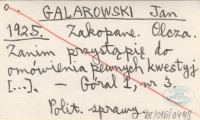 GALAROWSKI Jan
1925. Zakopane. Olcza.
Zanim przystąpię do
omówienia pewnych kwestyj
[...]. – Góral 1, nr 3.
Polit. sprawy.